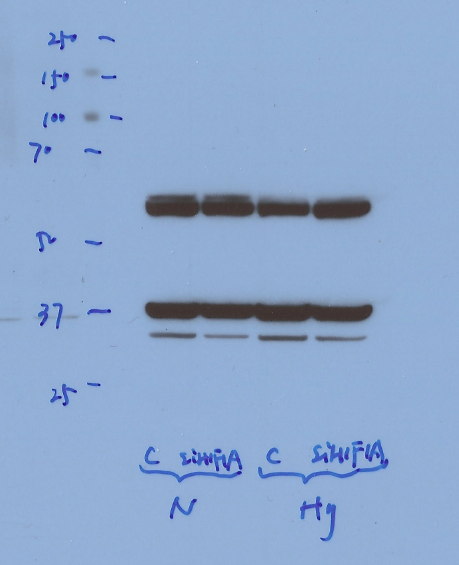 250 -
150 -
100 -
70 -
50 -
37 -
25 -
C siHIF1A C siHIF1A
N Hy